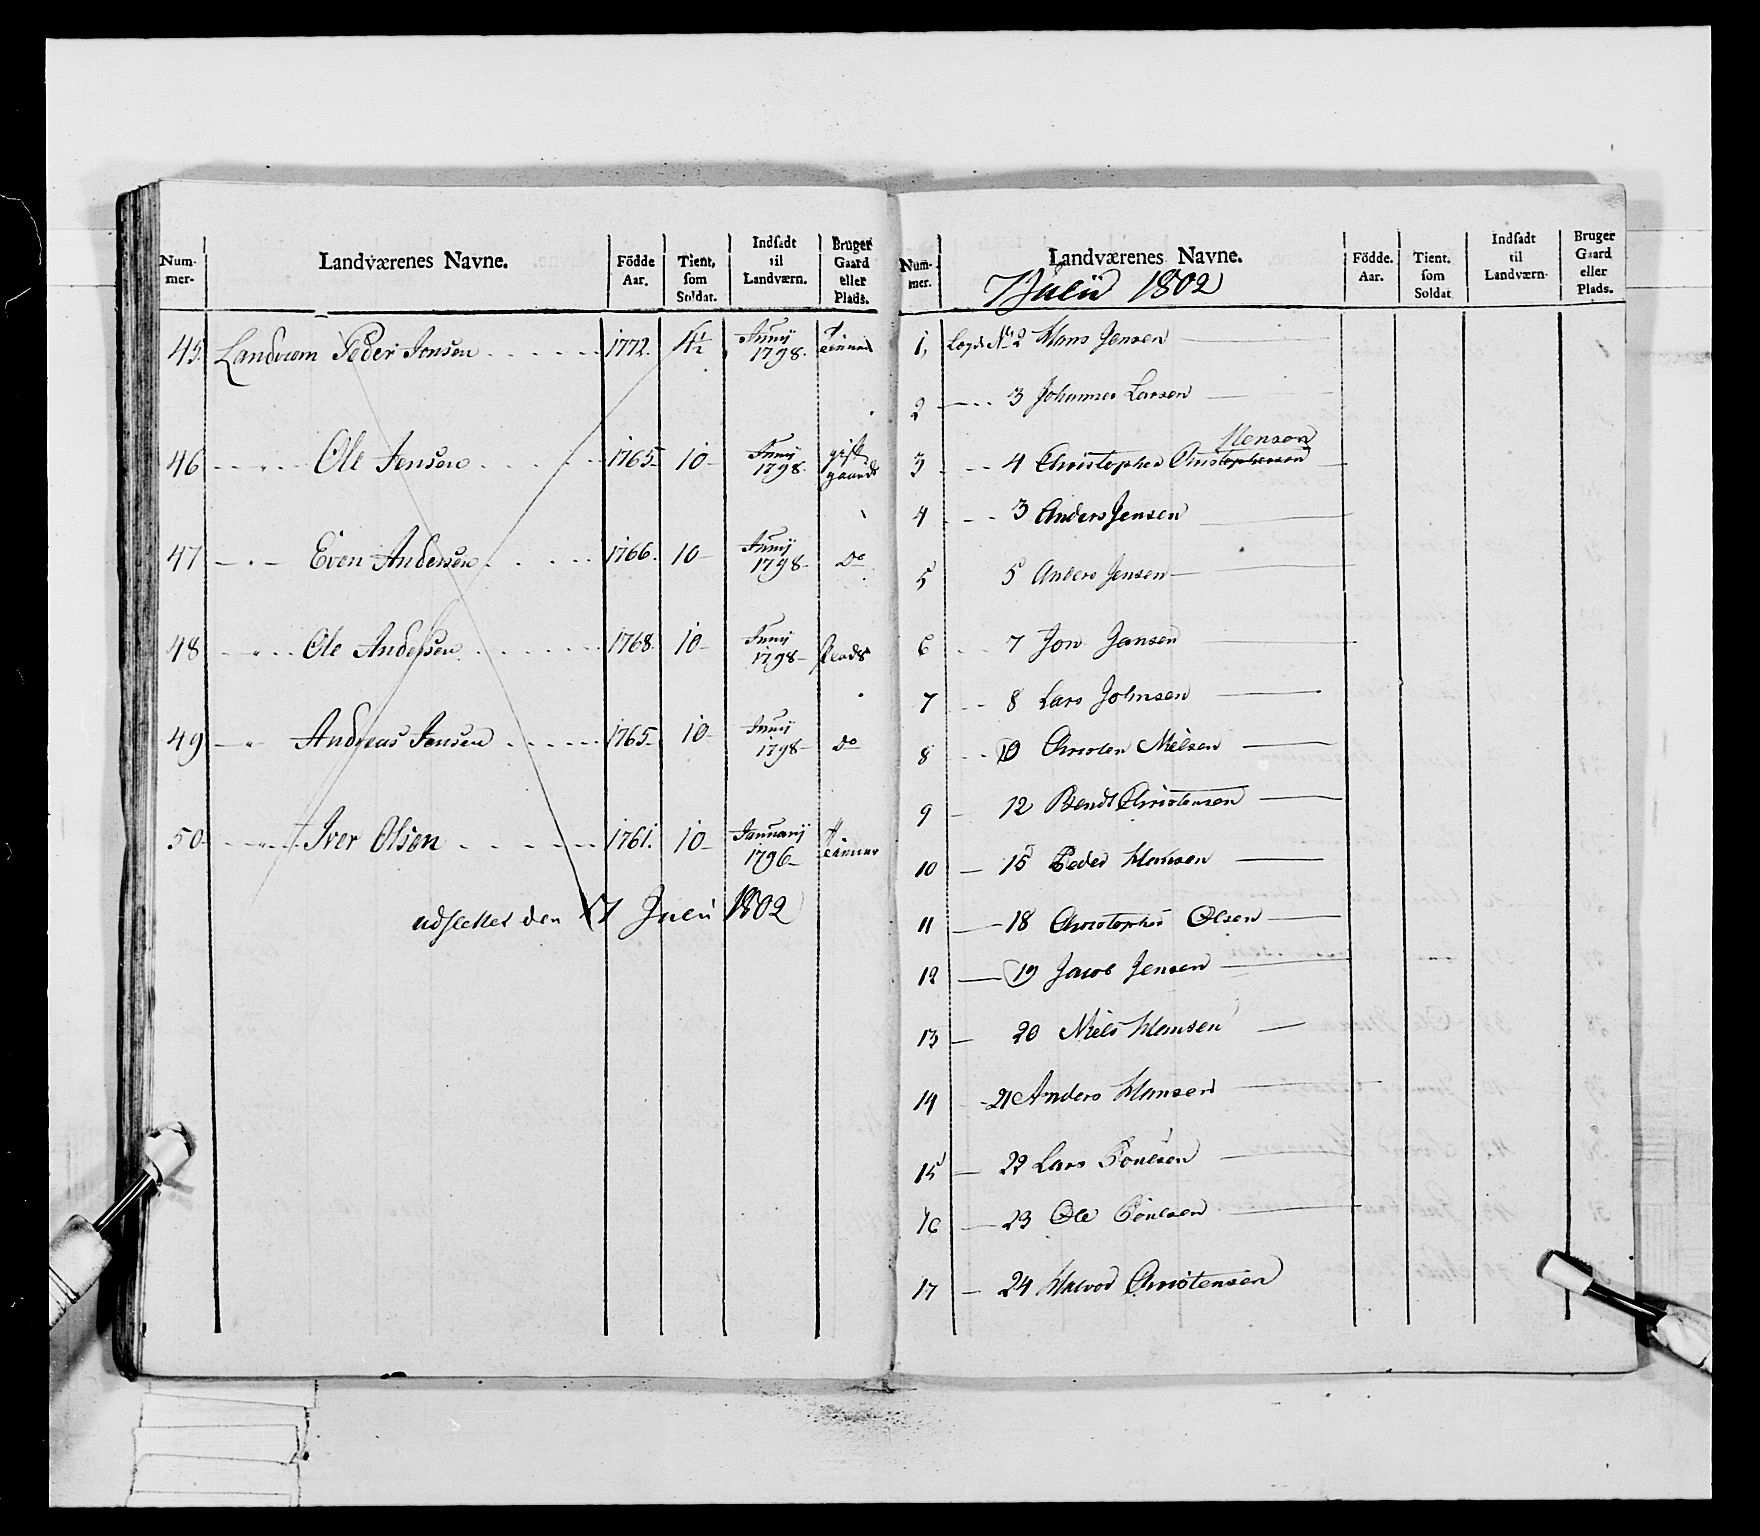 Num-mer. Landværenes Navne. Födde Aar. Tient som Soldat. Indsadt til Landværn. Bruger Gaard eller Plads.
45. Landværn Peder Jonsen 1772. 4½ Junij 1798.
46 Ole Jensen 1765 10 Junij 1798. gift gaards
47 Even Andersen 1766. 10 Junij 1798 Do
48 Ole Andersen 1768 10 Junij 1798 Plads
49 Andreas Jensen 1765 10 Junij 1798 Do
50 Iver Olsen 1761. 10 Januarij 1796
udslettet den 17 Julii 1802
Num-mer. Landværenes Navne. Födde. Aar. Tient. som Soldat Indsadt til Landværn. Bruger Gaard eller Plads.
7 Julii 1802
1, Lægd No 2 Hans Jensen
2 3 Johannes Larsen
Hensen
3 4 Christopher Christophersen
4 3 Anders Jensen
5 5 Anders Jensen
6 7 Jon Jansen
7 8 Lars Johnsen
8 10 Christen Nielsen
9 12 Bendt Christensen
10 15 Peder Hansen
11 18 Christopher Olsen
12 19 Jacob Jensen
13 20 Niels Hansen
14 21 Anders Hansen
15 22 Lars Poulsen
16 23 Ole Poulsen
17 24 Halvor Christensen